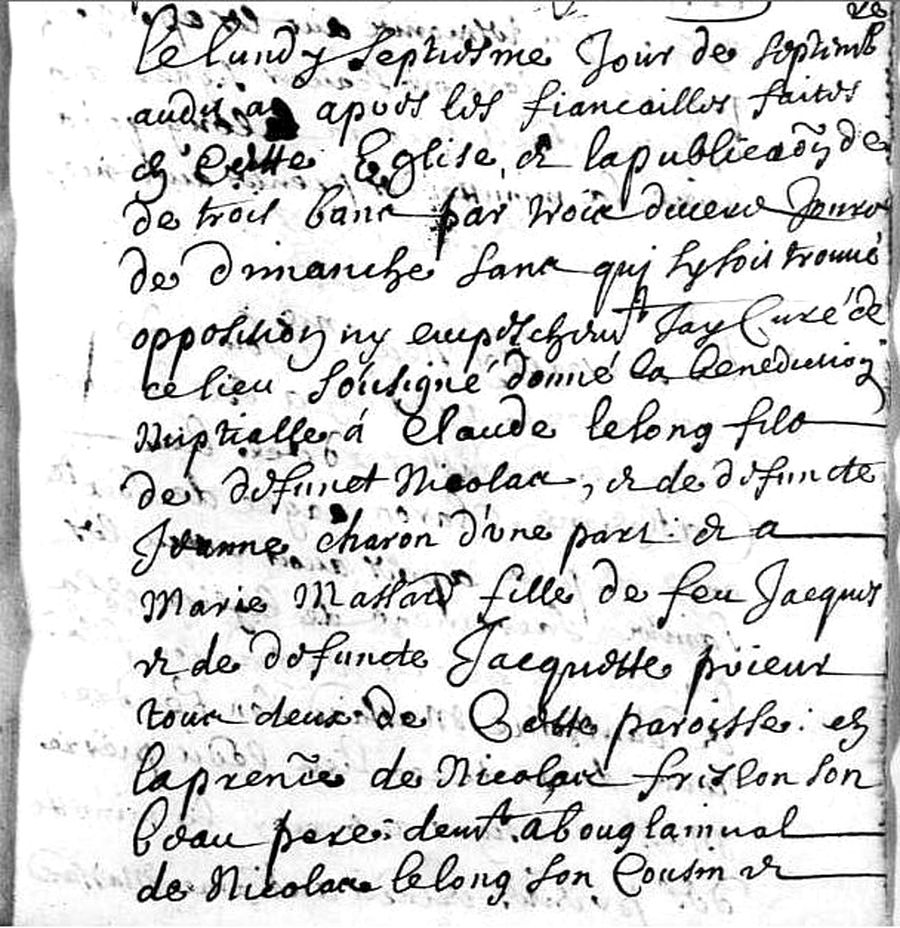 Le lundy septiesme Jour de septemb
re
audit an apres les fiancailles faites
en Cette Eglise, et la publicaõn de
de trois bans par trois divers Jours
de dimanche sans quj sy soit trouué
opposition ny empeschemt Jay Curé de
ce lieu soûsigné donné la benediction
Nuptialle á Claude lelong fils
de defunct Nicolas, et de defuncte
Jeanne charon d'vne part: et a
Marie Massard fille de feu Jacques
et de defuncte Jacquette prieur
tous deux de Cette paroisse: en
la presence de Nicolas frislon son
beau pere: demt. a bouglainual
de Nicolas lelong son Cousin et